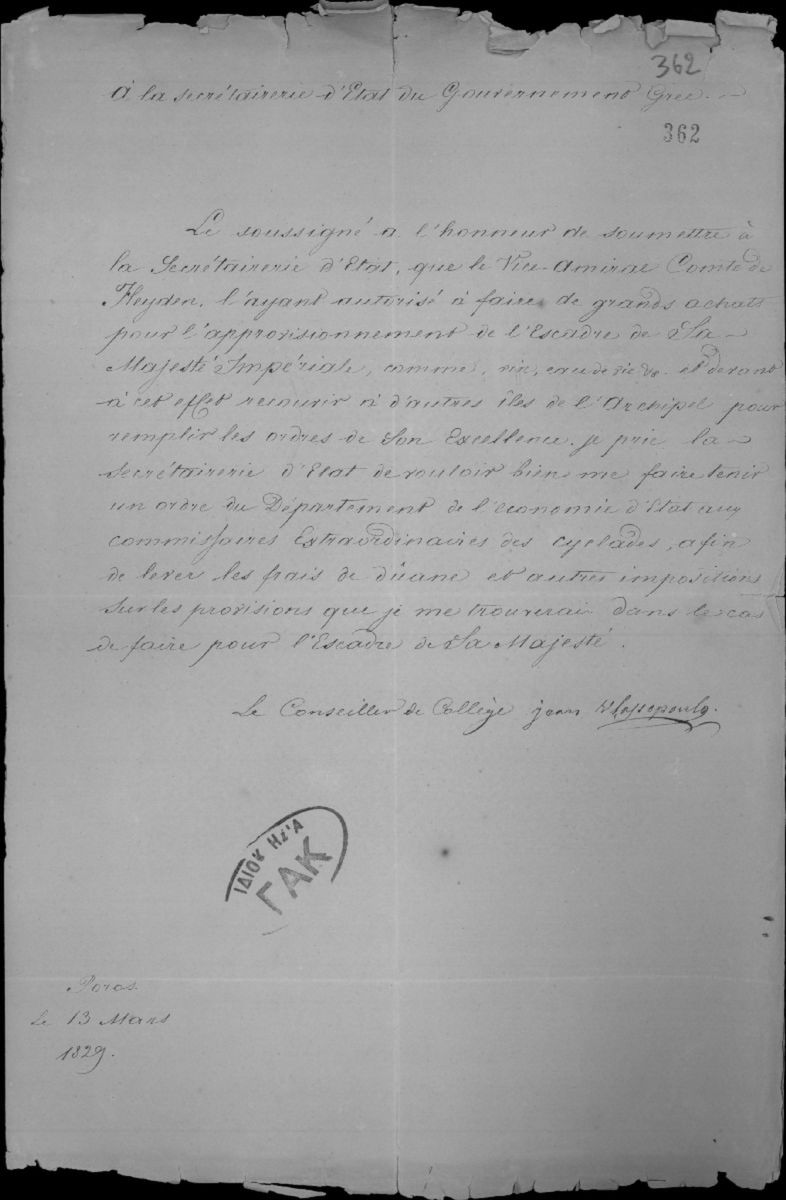 362
à la secrétairerie d'Etat du Gouvernement Grec.
362
Le soussigné a l'honneur de soumettre à
la Secrétairerie d'Etat, que le Vice-Amiral Comte de
Heyden, l'ayant autorisé à faire de grands achats
pour l'approvisionnement de l'Escadre de Sa
Majesté Impériale, comme, vin, eau de vie &c. et devant
à cet effet recourir à d'autres îles de l'Archipel pour
remplir les ordres de Son Excellence. je prie la
secrétairerie d'Etat de vouloir bien me faire tenir
un ordre du Département de l'économie d'Etat aux
commissaires Extraordinaires des cyclades, afin
de lever les frais de dûane et autres impositions
sur les provisions que je me trouverai dans le cas
de faire pour l'Escadre de Sa Majesté.
Le Conseiller de Collège jean Vlassopoulo.
ΓΑΚ
Poros
le 13 Mars
1829.